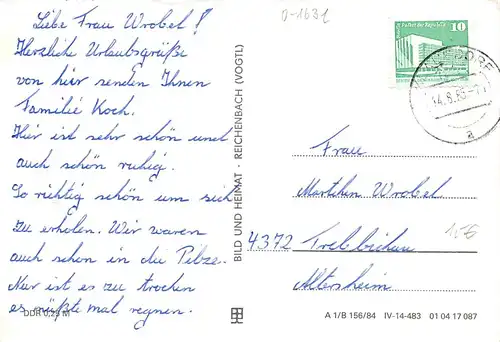 Liebe Frau Wrobel!
Herzliche Urlaubsgrüße
von hier senden Ihnen
Familie Koch.
Hier ist sehr schön und
auch schön ruhig.
So richtig schön um sich
zu erholen. Wir waren
auch schon in die Pilze.
Nur ist es zu trocken
es müßte mal regnen.
DDR 0,25 M
BILD UND HEIMAT · REICHENBACH (VOGTL)
0-1631
10
14.8.85
a
Frau
Wrobel
4372 Trebbichau
Altersheim
156
A 1/B 156/84 IV-14-483 01 04 17 087